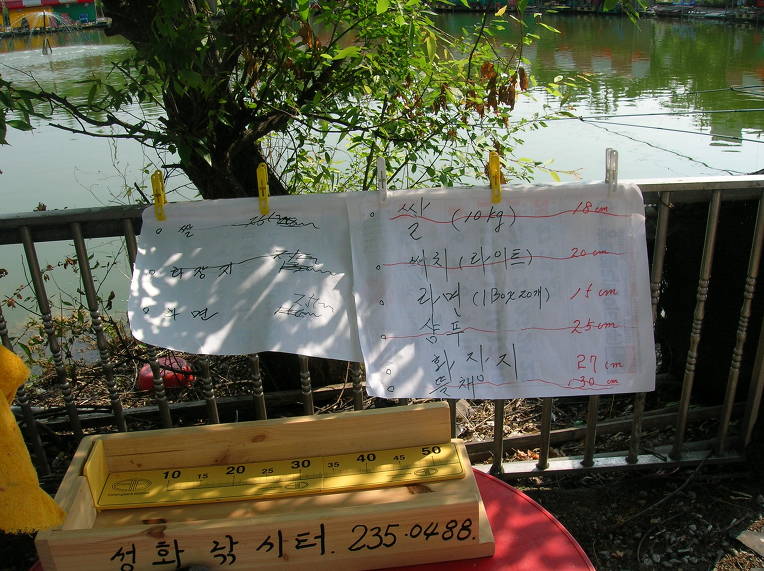 쌀
화장지
라면
쌀 (10kg) 18cm
써치 (라이트) 20cm
라면 (1BOX 20개) 15cm
샴푸 25cm
화장지 27cm
뜰채 30cm
10 15 20 25 30 35 40 45 50
성화 낚시터. 235-0488.